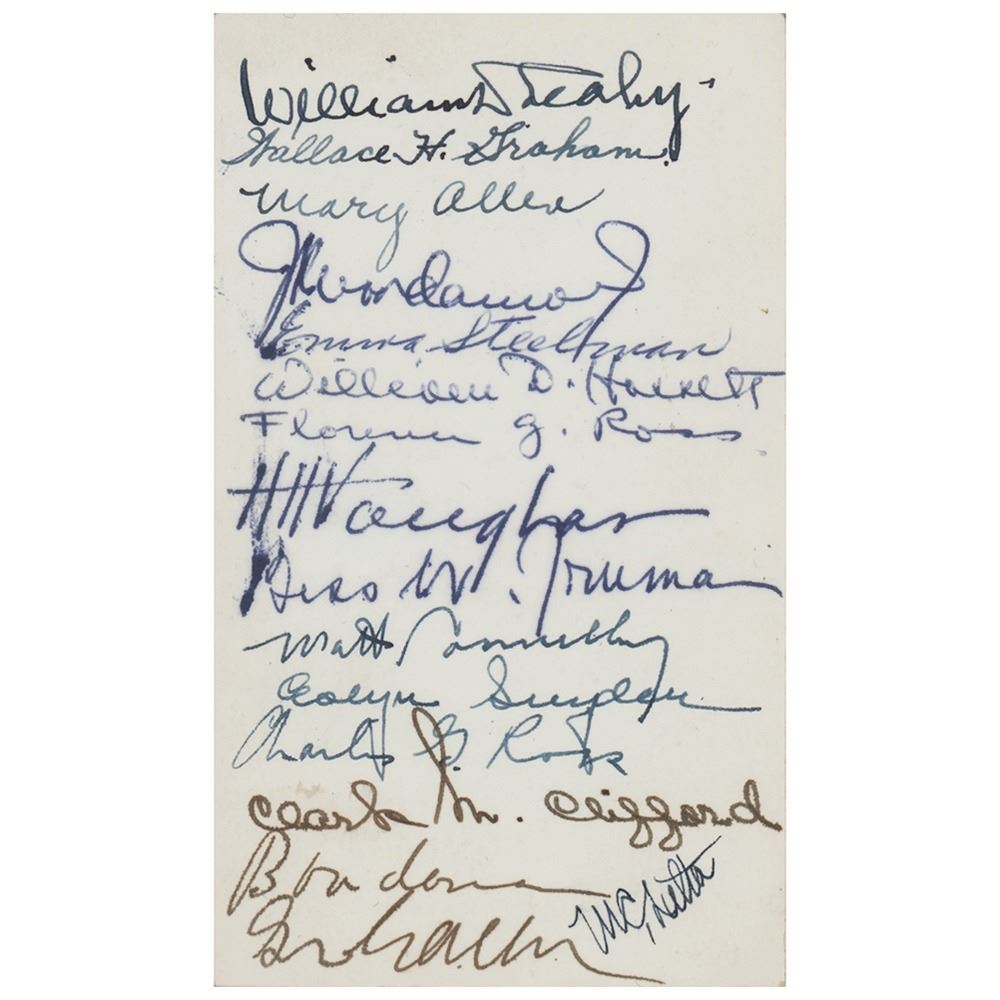 William D Leahy
Wallace H. Graham
Mary Allen
J K Vardaman Jr
Emma Steelman
William D. Hassett
Florence G. Ross
HH Vaughan
Bess W. Truman
Matt Connelly
Evelyn Snyder
Charles G. Ross
Clark M. Clifford
B Vardaman